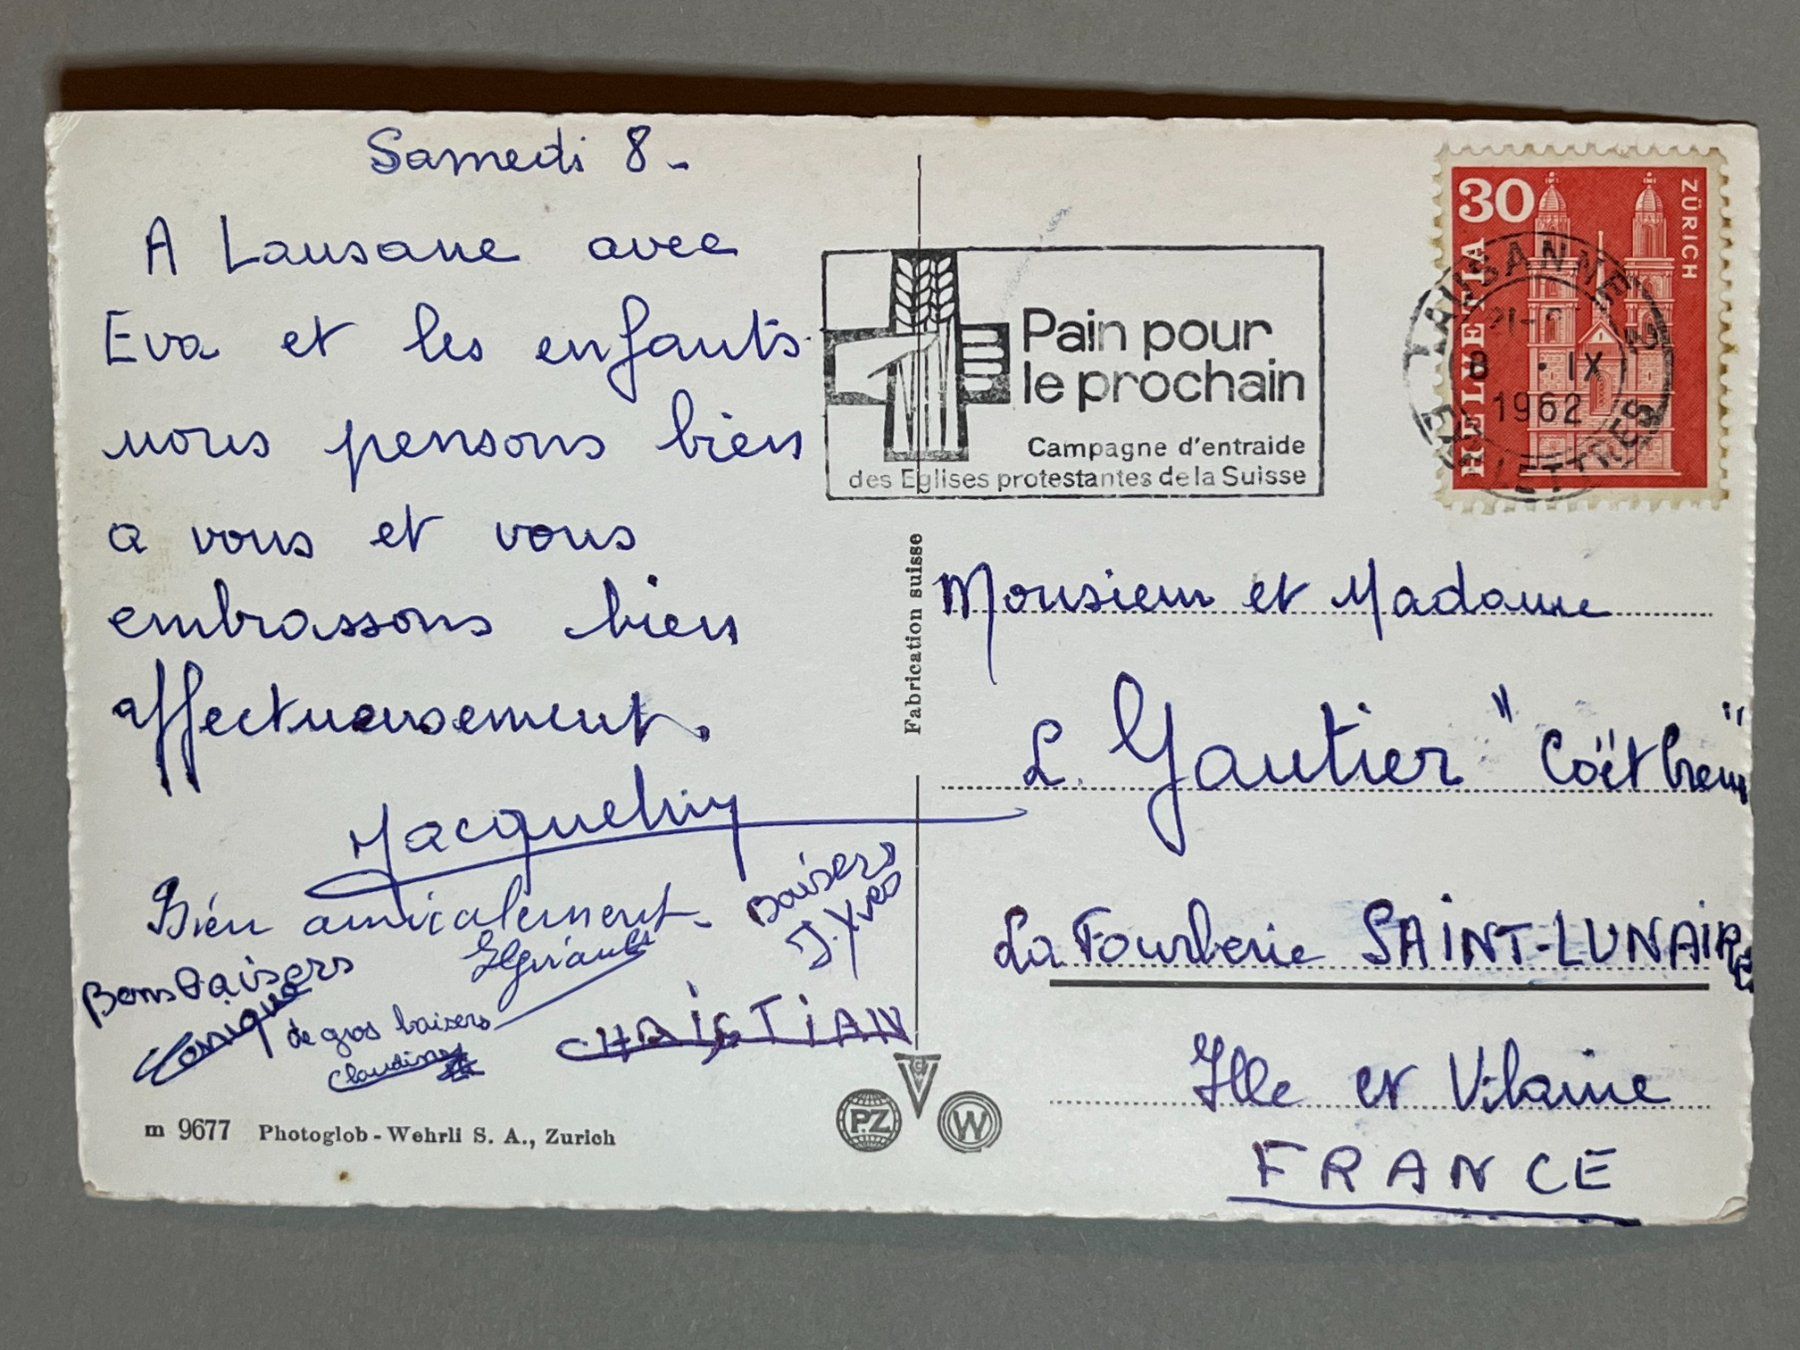 Samedi 8 -
A Lausane avec
Eva et les enfants
nous pensons bien
a vous et vous
embrassons bien
affectueusement.
Bien amicalement.
Baisers
J. Yves
Bons baisers
de gros baisers
Claudine
CHRISTIAN
m 9677 Photoglob - Wehrli S. A., Zurich
PZ
W
Fabrication suisse
Pain pour
le prochain
Campagne d'entraide
des Eglises protestantes de la Suisse
30
HELVETIA
ZÜRICH
LAUSANNE
8 . IX
1962
Monsieur et Madame
L. Gautier
La Fourberie SAINT-LUNAIRE
Ille et Vilaine
FRANCE